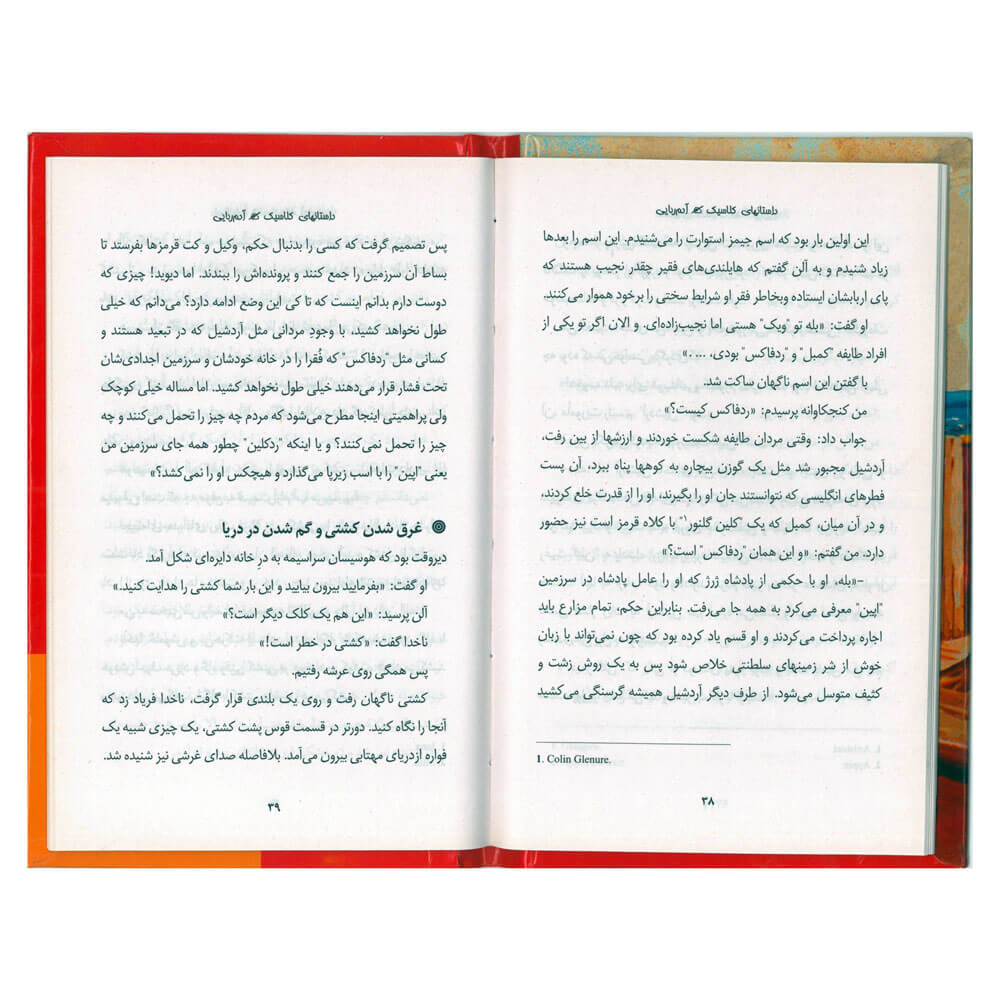 داستانهای کلاسیک آدم‌ربایی
این اولین بار بود که اسم جیمز استوارت را می‌شنیدم. این اسم را بعدها
زیاد شنیدم و به آلن گفتم که هایلندی‌های فقیر چقدر نجیب هستند که
پای اربابشان ایستاده وبخاطر فقر او شرایط سختی را برخود هموار می‌کنند.
او گفت: «بله تو "ویک" هستی اما نجیب‌زاده‌ای. و الان اگر تو یکی از
افراد طایفه "کمبل" و "ردفاکس" بودی، ... .»
با گفتن این اسم ناگهان ساکت شد.
من کنجکاوانه پرسیدم: «ردفاکس کیست؟»
جواب داد: وقتی مردان طایفه شکست خوردند و ارزشها از بین رفت،
آردشیل مجبور شد مثل یک گوزن بیچاره به کوهها پناه ببرد، آن پست
فطرهای انگلیسی که نتوانستند جان او را بگیرند، او را از قدرت خلع کردند،
و در آن میان، کمبل که یک "کلین گلنور¹" با کلاه قرمز است نیز حضور
دارد. من گفتم: «و این همان "ردفاکس" است؟»
–«بله، او با حکمی از پادشاه ژرژ که او را عامل پادشاه در سرزمین
"اپین" معرفی می‌کرد به همه جا می‌رفت. بنابراین حکم، تمام مزارع باید
اجاره پرداخت می‌کردند و او قسم یاد کرده بود که چون نمی‌تواند با زبان
خوش از شر زمینهای سلطنتی خلاص شود پس به یک روش زشت و
کثیف متوسل می‌شود. از طرف دیگر آردشیل همیشه گرسنگی می‌کشید
1. Colin Glenure.
۳۸
داستانهای کلاسیک آدم‌ربایی
پس تصمیم گرفت که کسی را بدنبال حکم، وکیل و کت قرمزها بفرستد تا
بساط آن سرزمین را جمع کنند و پرونده‌اش را ببندند. اما دیوید! چیزی که
دوست دارم بدانم اینست که تا کی این وضع ادامه دارد؟ می‌دانم که خیلی
طول نخواهد کشید، با وجودِ مردانی مثل آردشیل که در تبعید هستند و
کسانی مثل "ردفاکس" که فُقرا را در خانه خودشان و سرزمین اجدادی‌شان
تحت فشار قرار می‌دهند خیلی طول نخواهد کشید. اما مساله خیلی کوچک
ولی پراهمیتی اینجا مطرح می‌شود که مردم چه چیز را تحمل می‌کنند و چه
چیز را تحمل نمی‌کنند؟ و یا اینکه "ردکلین" چطور همه جای سرزمین من
یعنی "اپین" را با اسب زیرپا می‌گذارد و هیچکس او را نمی‌کشد؟»
غرق شدن کشتی و گم شدن در دریا
دیروقت بود که هوسیسان سراسیمه به درِ خانه دایره‌ای شکل آمد.
او گفت: «بفرمایید بیرون بیایید و این بار شما کشتی را هدایت کنید.»
آلن پرسید: «این هم یک کلک دیگر است؟»
ناخدا گفت: «کشتی در خطر است!»
پس همگی روی عرشه رفتیم.
کشتی ناگهان رفت و روی یک بلندی قرار گرفت، ناخدا فریاد زد که
آنجا را نگاه کنید. دورتر در قسمت قوس پشت کشتی، یک چیزی شبیه یک
فواره ازدریای مهتابی بیرون می‌آمد. بلافاصله صدای غرشی نیز شنیده شد.
۳۹